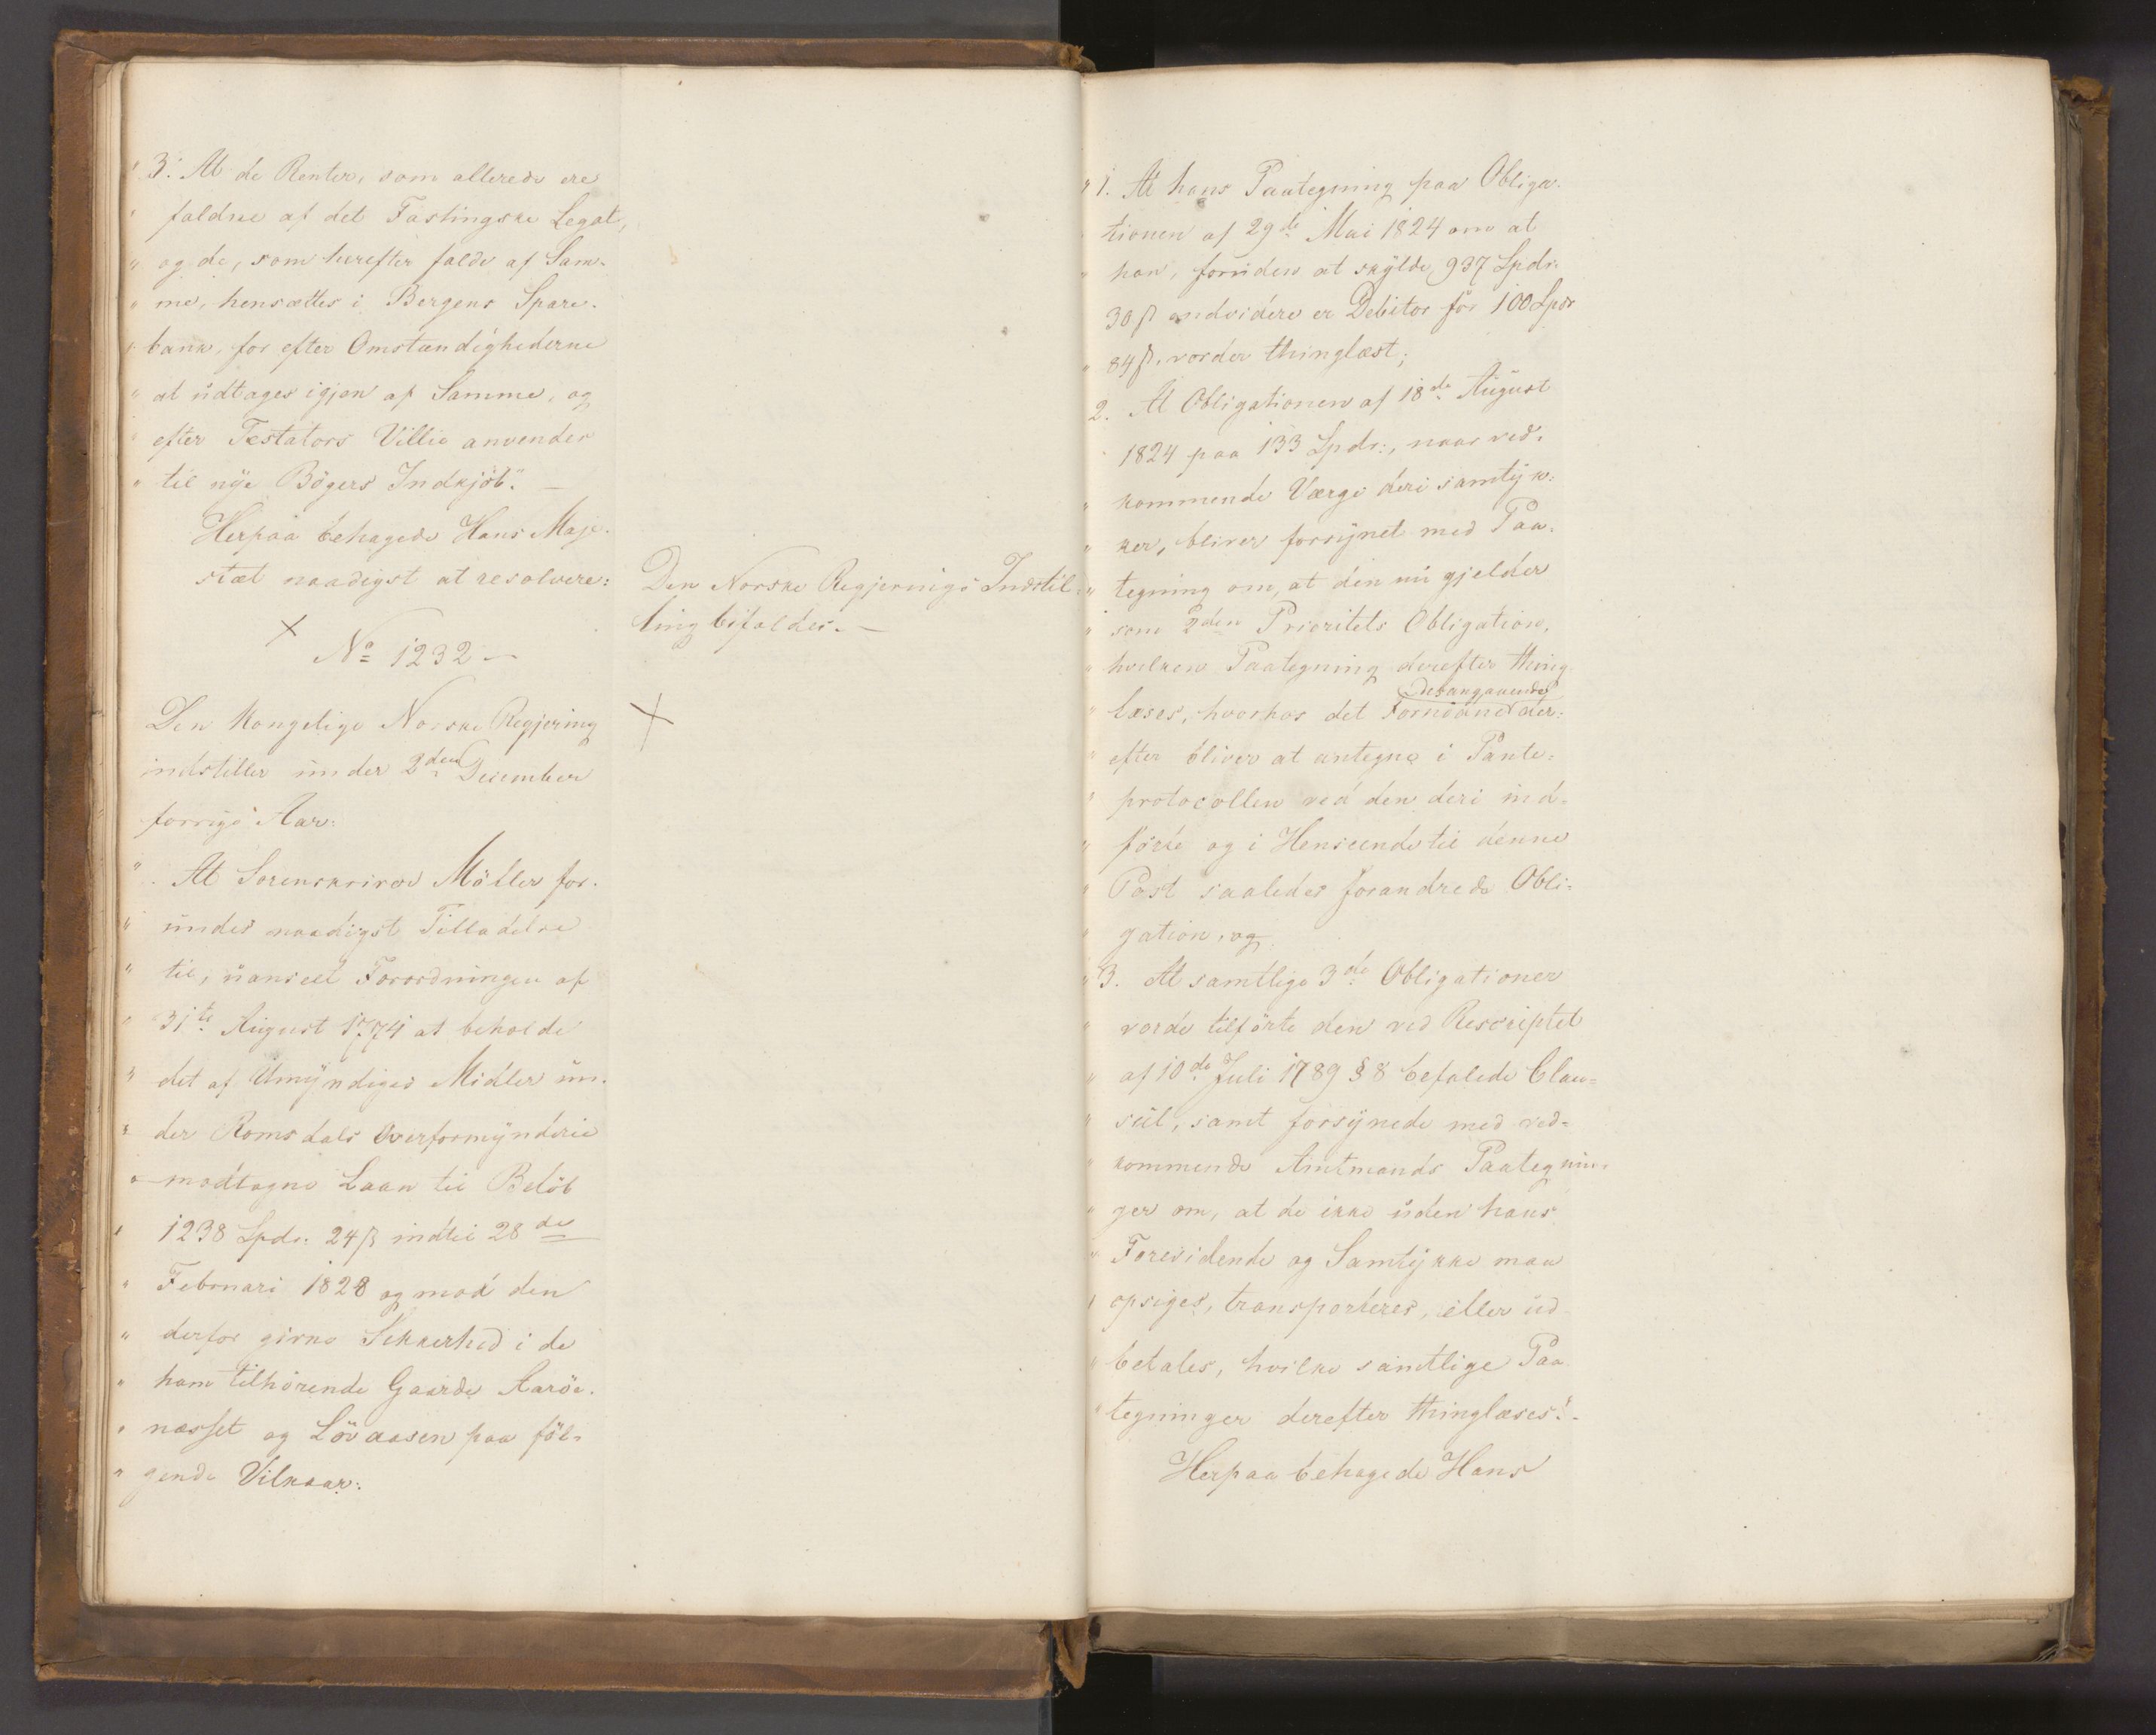 " 3: At de Renter, som allerede ere
" faldne af det Fastingske Legat,
" og de, som herefter falde af Sam-
" me, hensættes i Bergens Spare-
" bank, for efter Omstændighederne
" at udtages igjen af Samme, og
" efter Testators Villie anvendes
" til nye Bögers Indkjöb". —
Herpaa behagede Hans Maje-
stæt naadigst at resolvere:
Den Norske Regjerings Indstil-
ling bifaldes. —
× No 1232 —
×
Den Kongelige Norske Regjering
indstiller under 2den December
forrige Aar:
" At Sorenskriver Möller for-
" undes naadigst Tilladelse
" til, uanseet Forordningen af
" 31te August 1774 at beholde
" det af Umyndiges Midler un-
" der Romsdals Overformynderie
" modtagne Laan til Belöb
" 1238 Spdr. 24 ß indtil 28de
" Februari 1828 og mod den
" derfor givne Sikkerhed i de
" ham tilhörende Gaarde Aaröe-
" næsset og Lövaasen paa föl-
" gende Vilkaar:
" 1. At hans Paategning paa Obliga-
" tionen af 29de Mai 1824 om at
" han, foruden at skylde 937 Spdr.
" 30 ß endvidere er Debitor for 100 Spdr
" 84 ß, vorder thinglæst;
2. At Obligationen af 18de August
" 1824 paa 133 Spdr:, naar ved-
" kommende Værge deri samtyk-
" ker, bliver forsynet med Paa-
" tegning om, at den nu gjelder
" som 2den Prioritets Obligation,
" hvilken Paategning derefter thing-
desangaaende
" læses, hvorhos det Fornödne der-
" efter bliver at antegne i Pante-
" protocollen ved den deri ind-
" förte og i Henseende til denne
" Post saaledes forandrede Obli-
" gation, og
" 3. At samtlige 3de Obligationer
" vorde tilförte den ved Rescriptet
" af 10de Juli 1789 § 8 befalede Clau-
" sul, samt forsynede med ved-
" kommende Amtmands Paategnin-
" ger om, at de ikke uden hans
" Forevidende og Samtykke maa
" opsiges, transporteres, eller ud-
" betales, hvilke samtlige Paa-
" tegninger derefter thinglæses". -
Herpaa behagede Hans